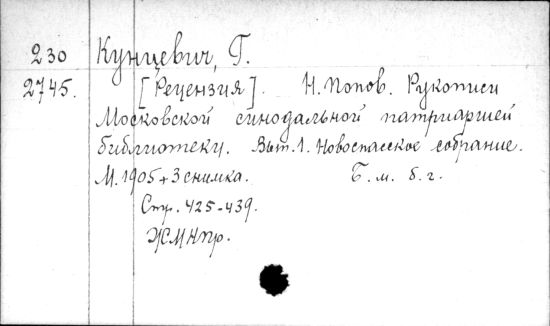 230 Кунцевич, Г.
2745. [Рецензия]. Н. Попов. Рукописи
Московской синодальной патриаршей
библиотеки. Вып. 1. Новоспасское собрание.
М. 1905 + 3 снимка. Б. м. б. г.
Стр. 425-439.
ЖМНпр.